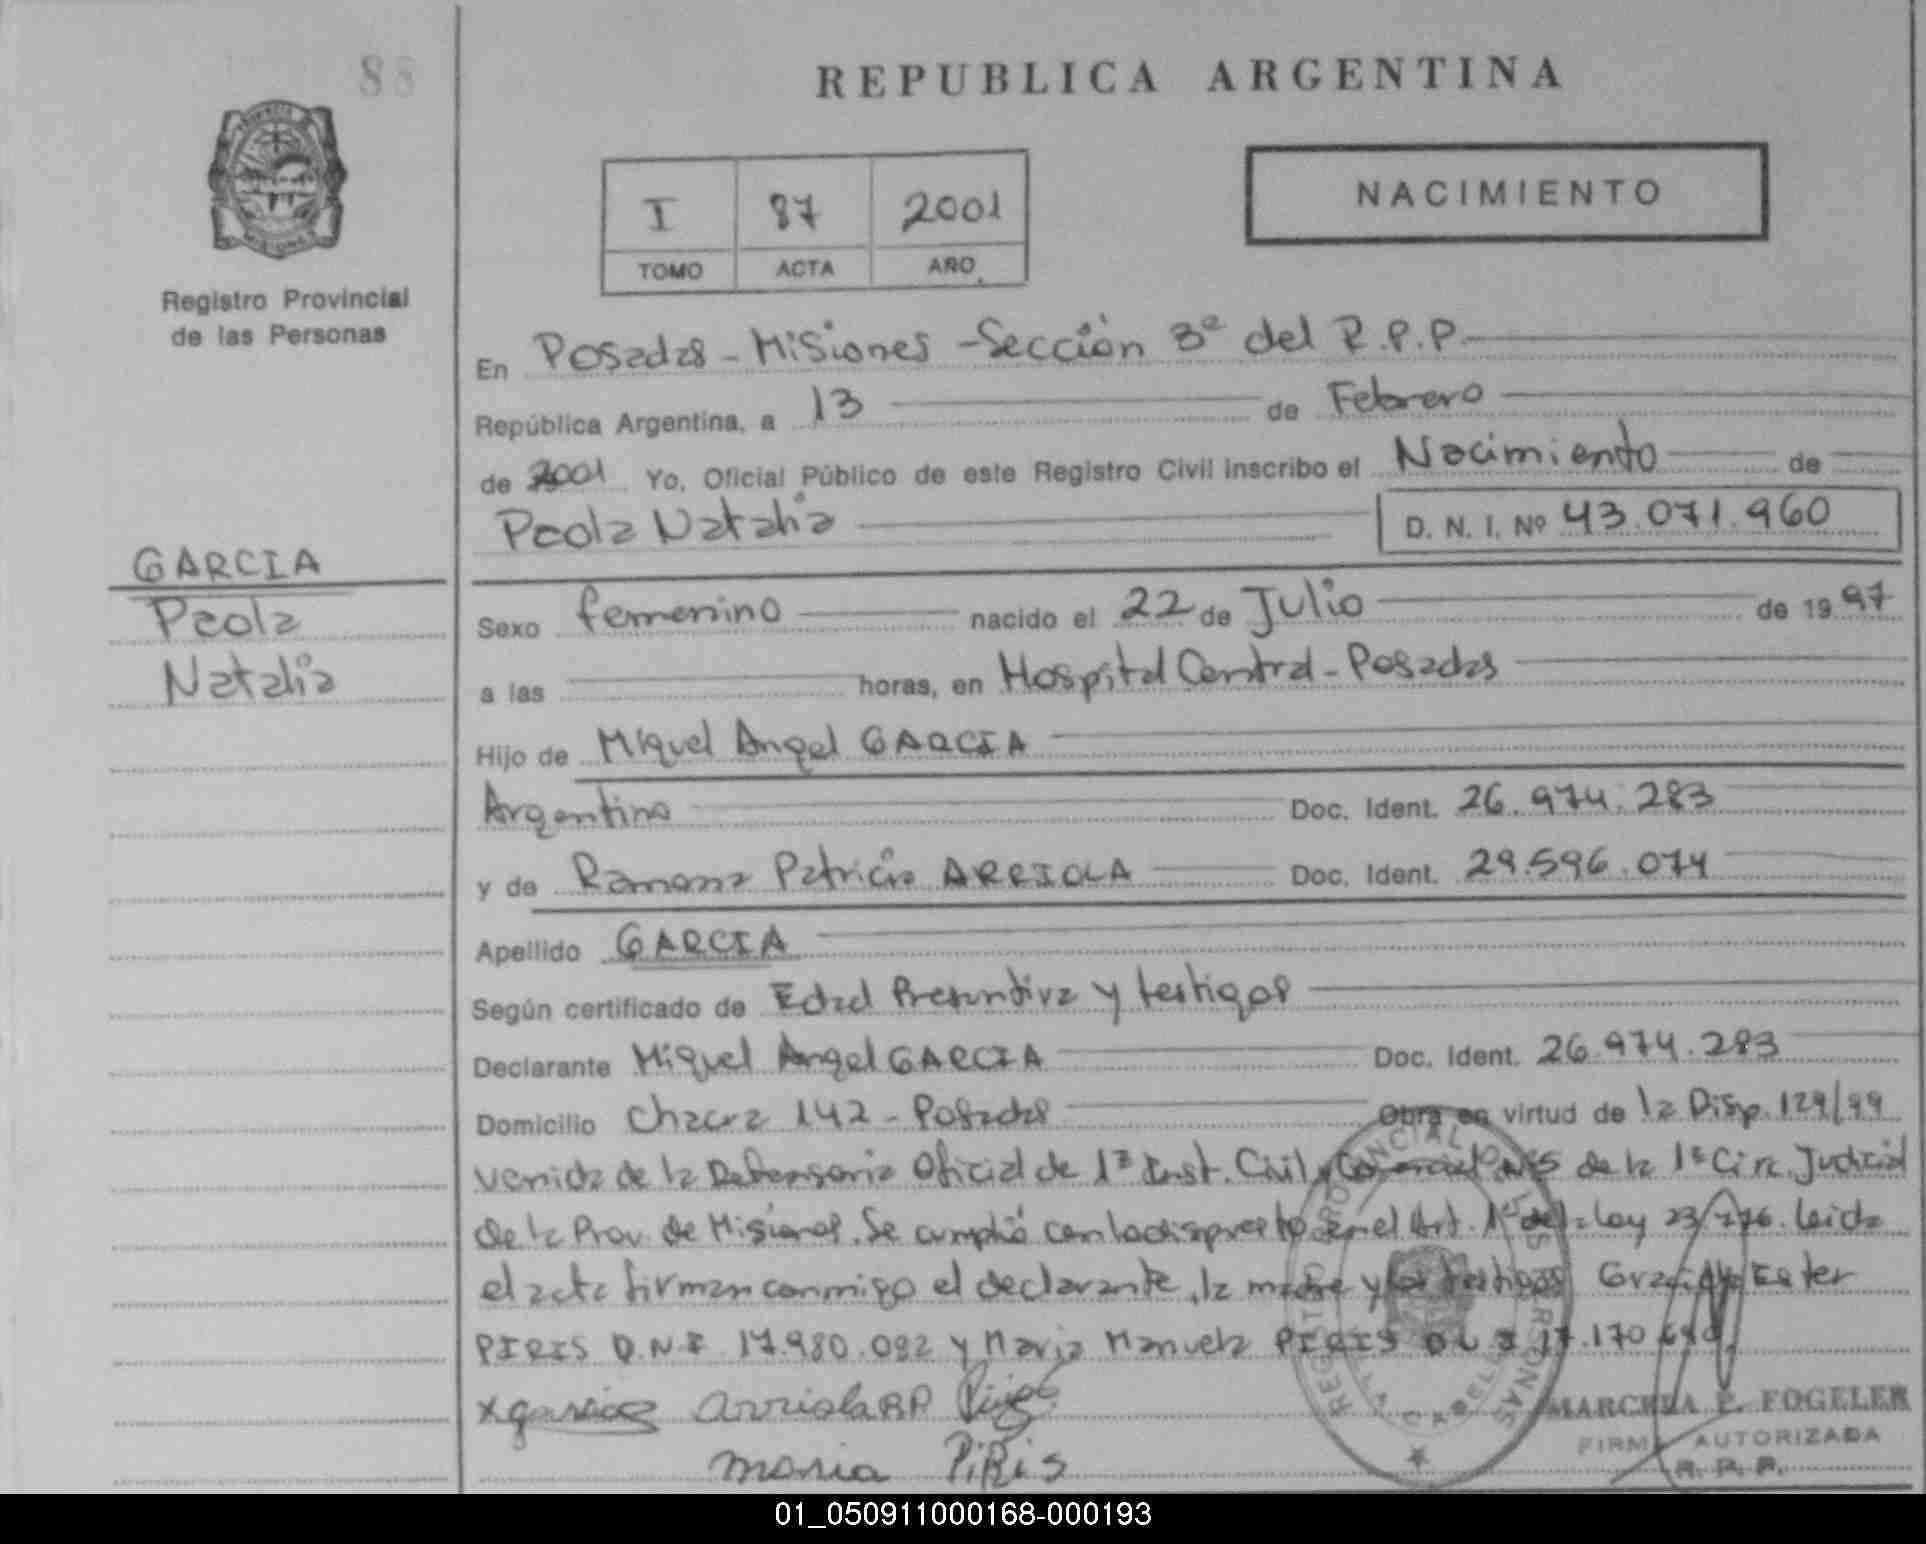 88
REPUBLICA ARGENTINA
NACIMIENTO
I 87 2001
TOMO ACTA AÑO
Registro Provincial
de las Personas
En Posadas - Misiones - Sección 3ª del R.P.P.
República Argentina, a 13 de Febrero
de 2001 Yo, Oficial Público de este Registro Civil inscribo el Nacimiento de
Paola Natalia D. N. I. Nº 43.071.960
GARCIA
Paola
Natalia
Sexo femenino nacido el 22 de Julio de 1997
a las horas, en Hospital Central - Posadas
Hijo de Miguel Angel GARCIA
Argentino Doc. Ident. 26.974.283
y de Ramona Patricia ARRIOLA Doc. Ident. 29.596.074
Apellido GARCIA
Según certificado de Edad Presuntiva y testigos
Declarante Miguel Angel GARCIA Doc. Ident. 26.974.283
Domicilio Chacra 142 - Posadas Obra en virtud de la Disp. 129/99
venida de la Defensoria Oficial de 1ª Inst. Civil, Comercial de la 1ª Circ. Judicial
de la Prov. de Misiones. Se cumplió con lo dispuesto en el Art. 1º de la Ley Leida
el acta firman conmigo el declarante, la madre y los testigos Ester
PIRIS D.N.I 17.980.092 y Maria Manuela PIRIS D.N.I 17.170
x garcia arriola RP Piris
maria PiRis
REGISTRO PROVINCIAL DE LAS PERSONAS
MARCELA P. FOGELER
FIRMA AUTORIZADA
R. P. P.
01_050911000168-000193